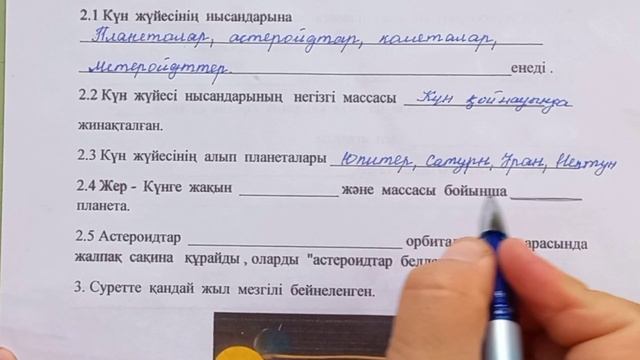 2.1 Күн жүйесінің нысандарына
Планеталар, астеройдтар, кометалар,
Метеройдттер. енеді .
2.2 Күн жүйесі нысандарының негізгі массасы Күн қойнауында
жинақталған.
2.3 Күн жүйесінің алып планеталары Юпитер, Сатурн, Уран, Нептун
2.4 Жер - Күнге жақын және массасы бойынша
планета.
2.5 Астероидтар арасында
жалпақ сақина құрайды , оларды "астероидтар
3. Суретте қандай жыл мезгілі бейнеленген.